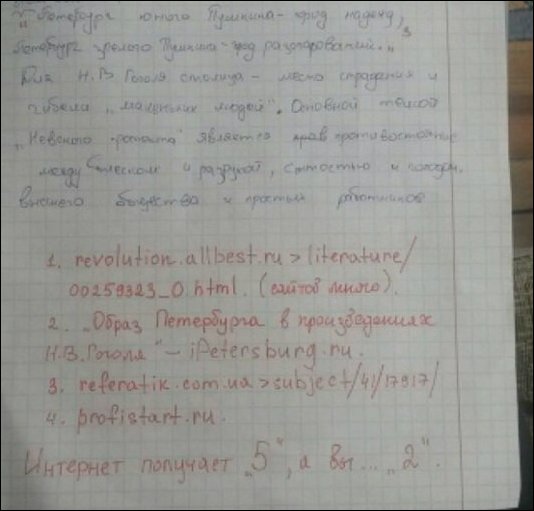 „Петербург юного Пушкина – город надежд,
Петербург зрелого Пушкина – город разочарований." 3
Для Н.В Гоголя столица – место страдания и
гибели „маленьких людей". Основной темой
„Невского проспекта" является нрав противостояние
между блеском и разрухой, сытостью и голодом
высшего общества и простых работников
1. revolution.allbest.ru > literature/
00259323_0.html. (сайтов много).
2. „Образ Петербурга в произведениях
Н.В.Гоголя" – iPetersburg.ru.
3. referatik.com.ua>subject/41/17917/
4. profistart.ru.
Интернет получает „5", а вы... „2".